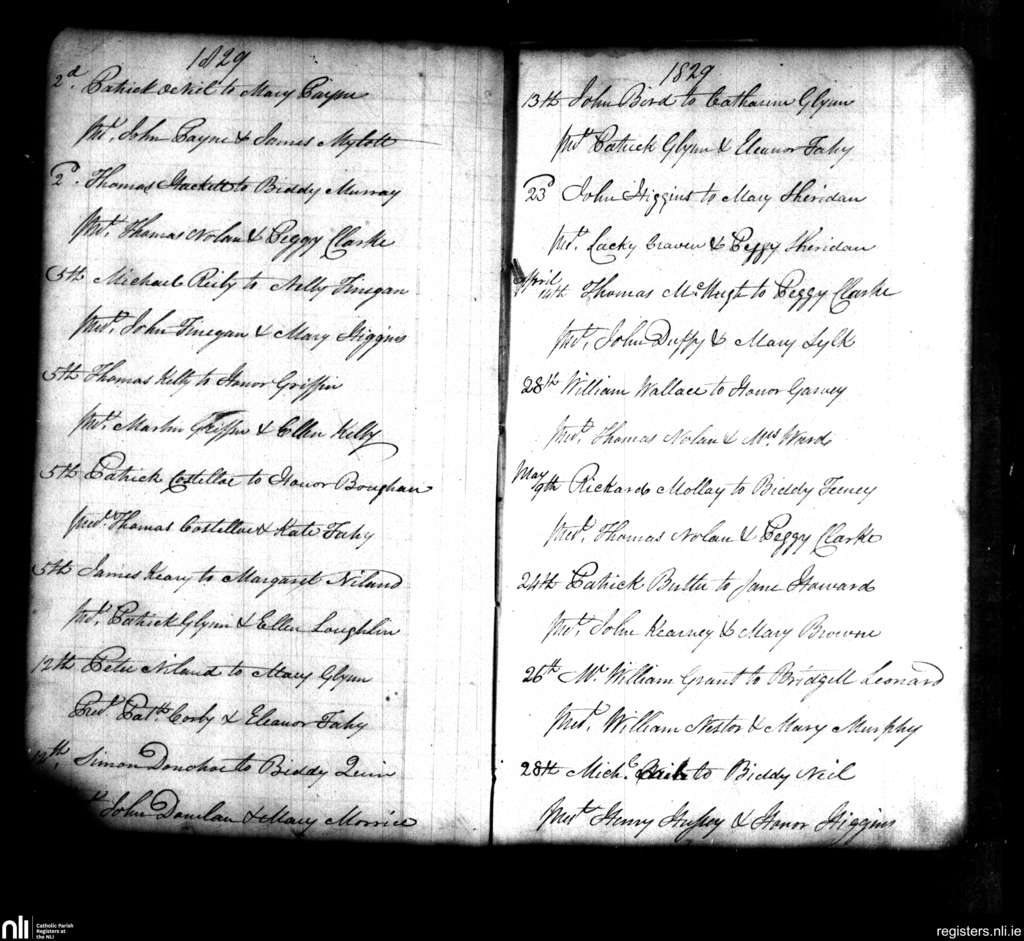 1829
2d Patrick ONeil to Mary Payne
Prst. John Payne & James Mylott
2d. Thomas Hackett to Biddy Murray
Prst. Thomas Nolan & Peggy Clarke
5th Michael Reily to Nelly Finegan
Prst. John Finegan & Mary Higgins
5th Thomas Kelly to Honor Griffin
Prst. Martin Griffin & Ellen Kelly
5th Patrick Costelloe to Honor Boughan
Prst. Thomas Costelloe & Kate Fahy
5th James Keary to Margaret Niland
Prst. Patrick Glynn & Ellen Loughlin
12th Peter Niland to Mary Glynn
Prst. Patk. Corby & Eleanor Fahy
12th. Simon Donohoe to Biddy Quin
John Donelan & Mary Morrice
1829
13th John Bird to Catharine Glynn
Prst Patrick Glynn & Eleanor Fahy
23d John Higgins to Mary Sheridan
Prst. Lacky Craven & Peggy Sheridan
April 14th Thomas McHugh to Peggy Clarke
Prst. John Duffy & Mary Lylk
28th William Wallace to Honor Garvey
Prst. Thomas Nolan & Mrs Ward
May 9th Rickard Mollay to Biddy Feeney
Prst. Thomas Nolan & Peggy Clarke
24th Patrick Butler to Jane Howard
Prst. John Kearney & Mary Browne
26th Mr. William Grant to Bridgett Leonard
Prst. William Nestor & Mary Murphy
28th Michl. to Biddy Neil
Prst Henry Hussey & Honor Higgins
nli
Catholic Parish
Registers at
the NLI
registers.nli.ie